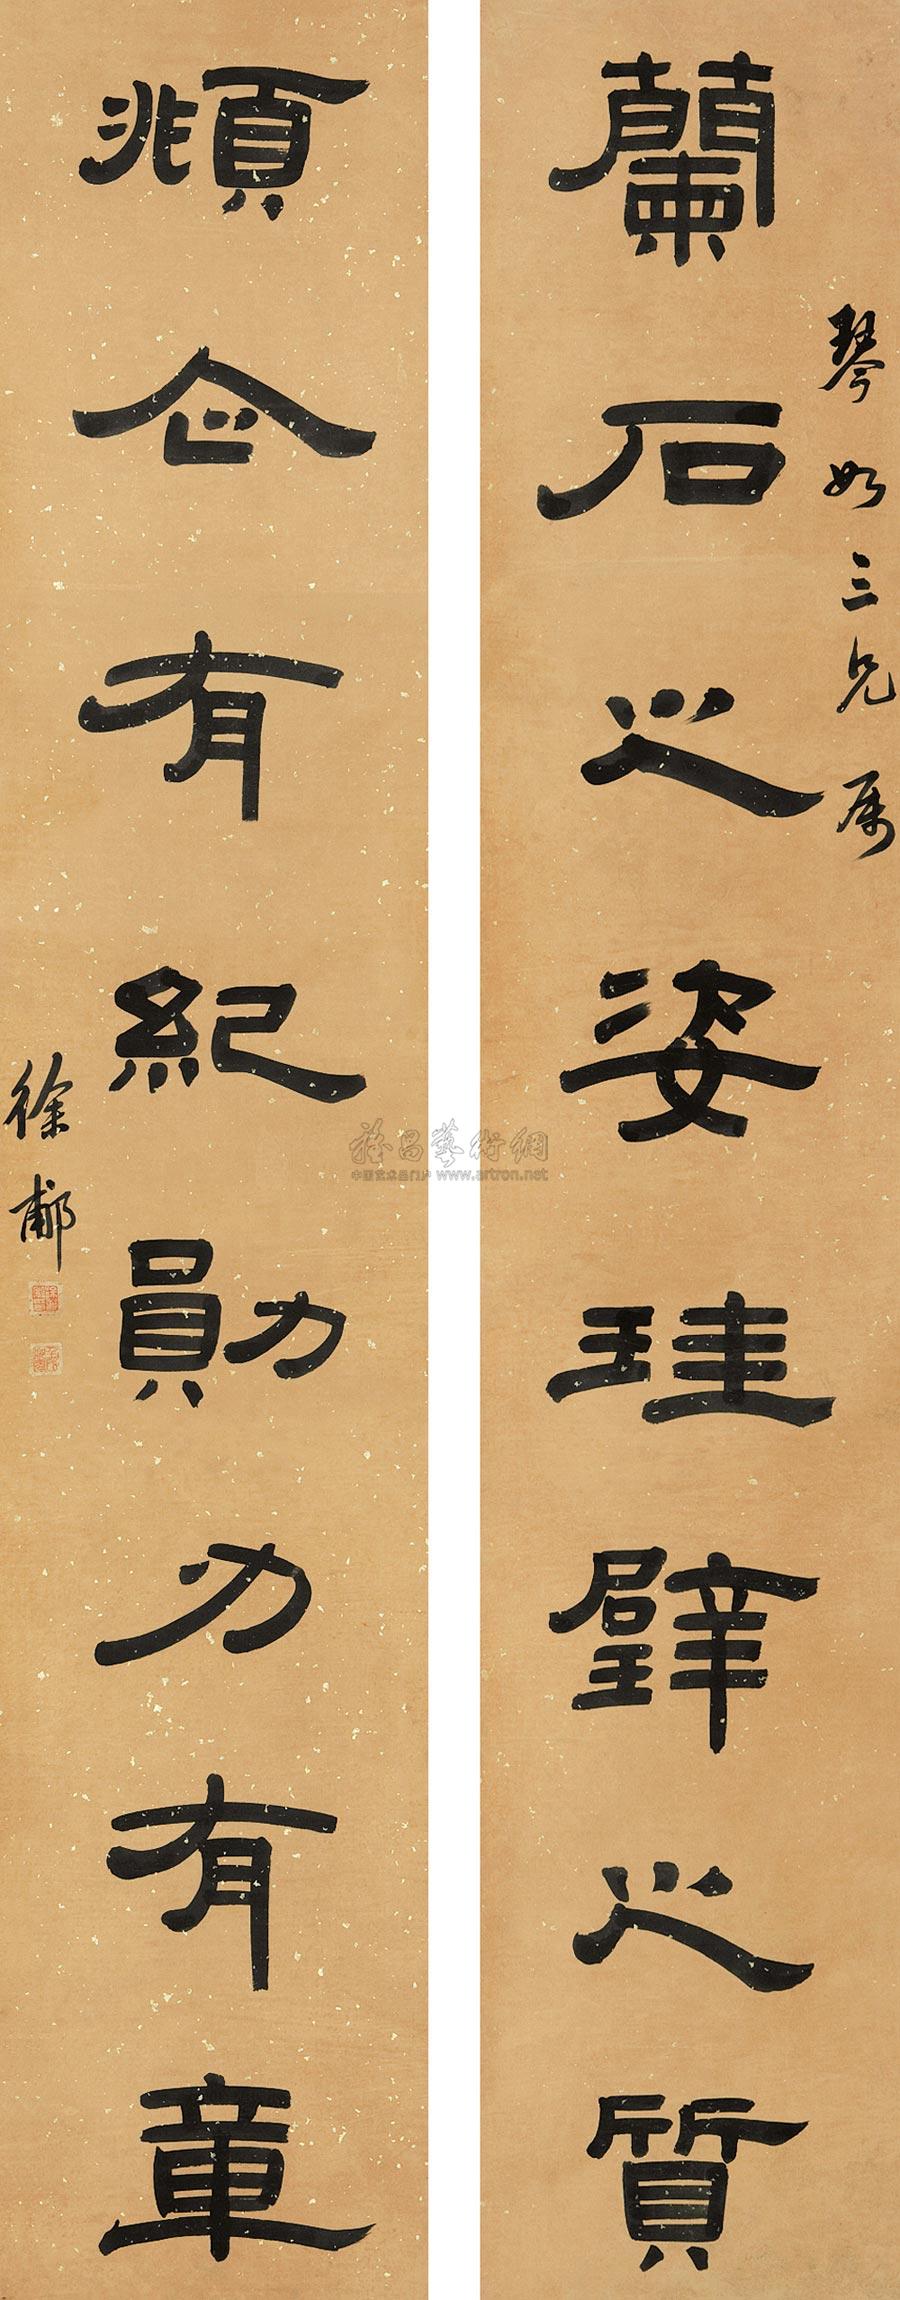 蘭石之姿珪璧之質
琴如三兄属
頫企有紀勛力有章
徐郙
雅昌藝術網
中国艺术品门户 www.artron.net